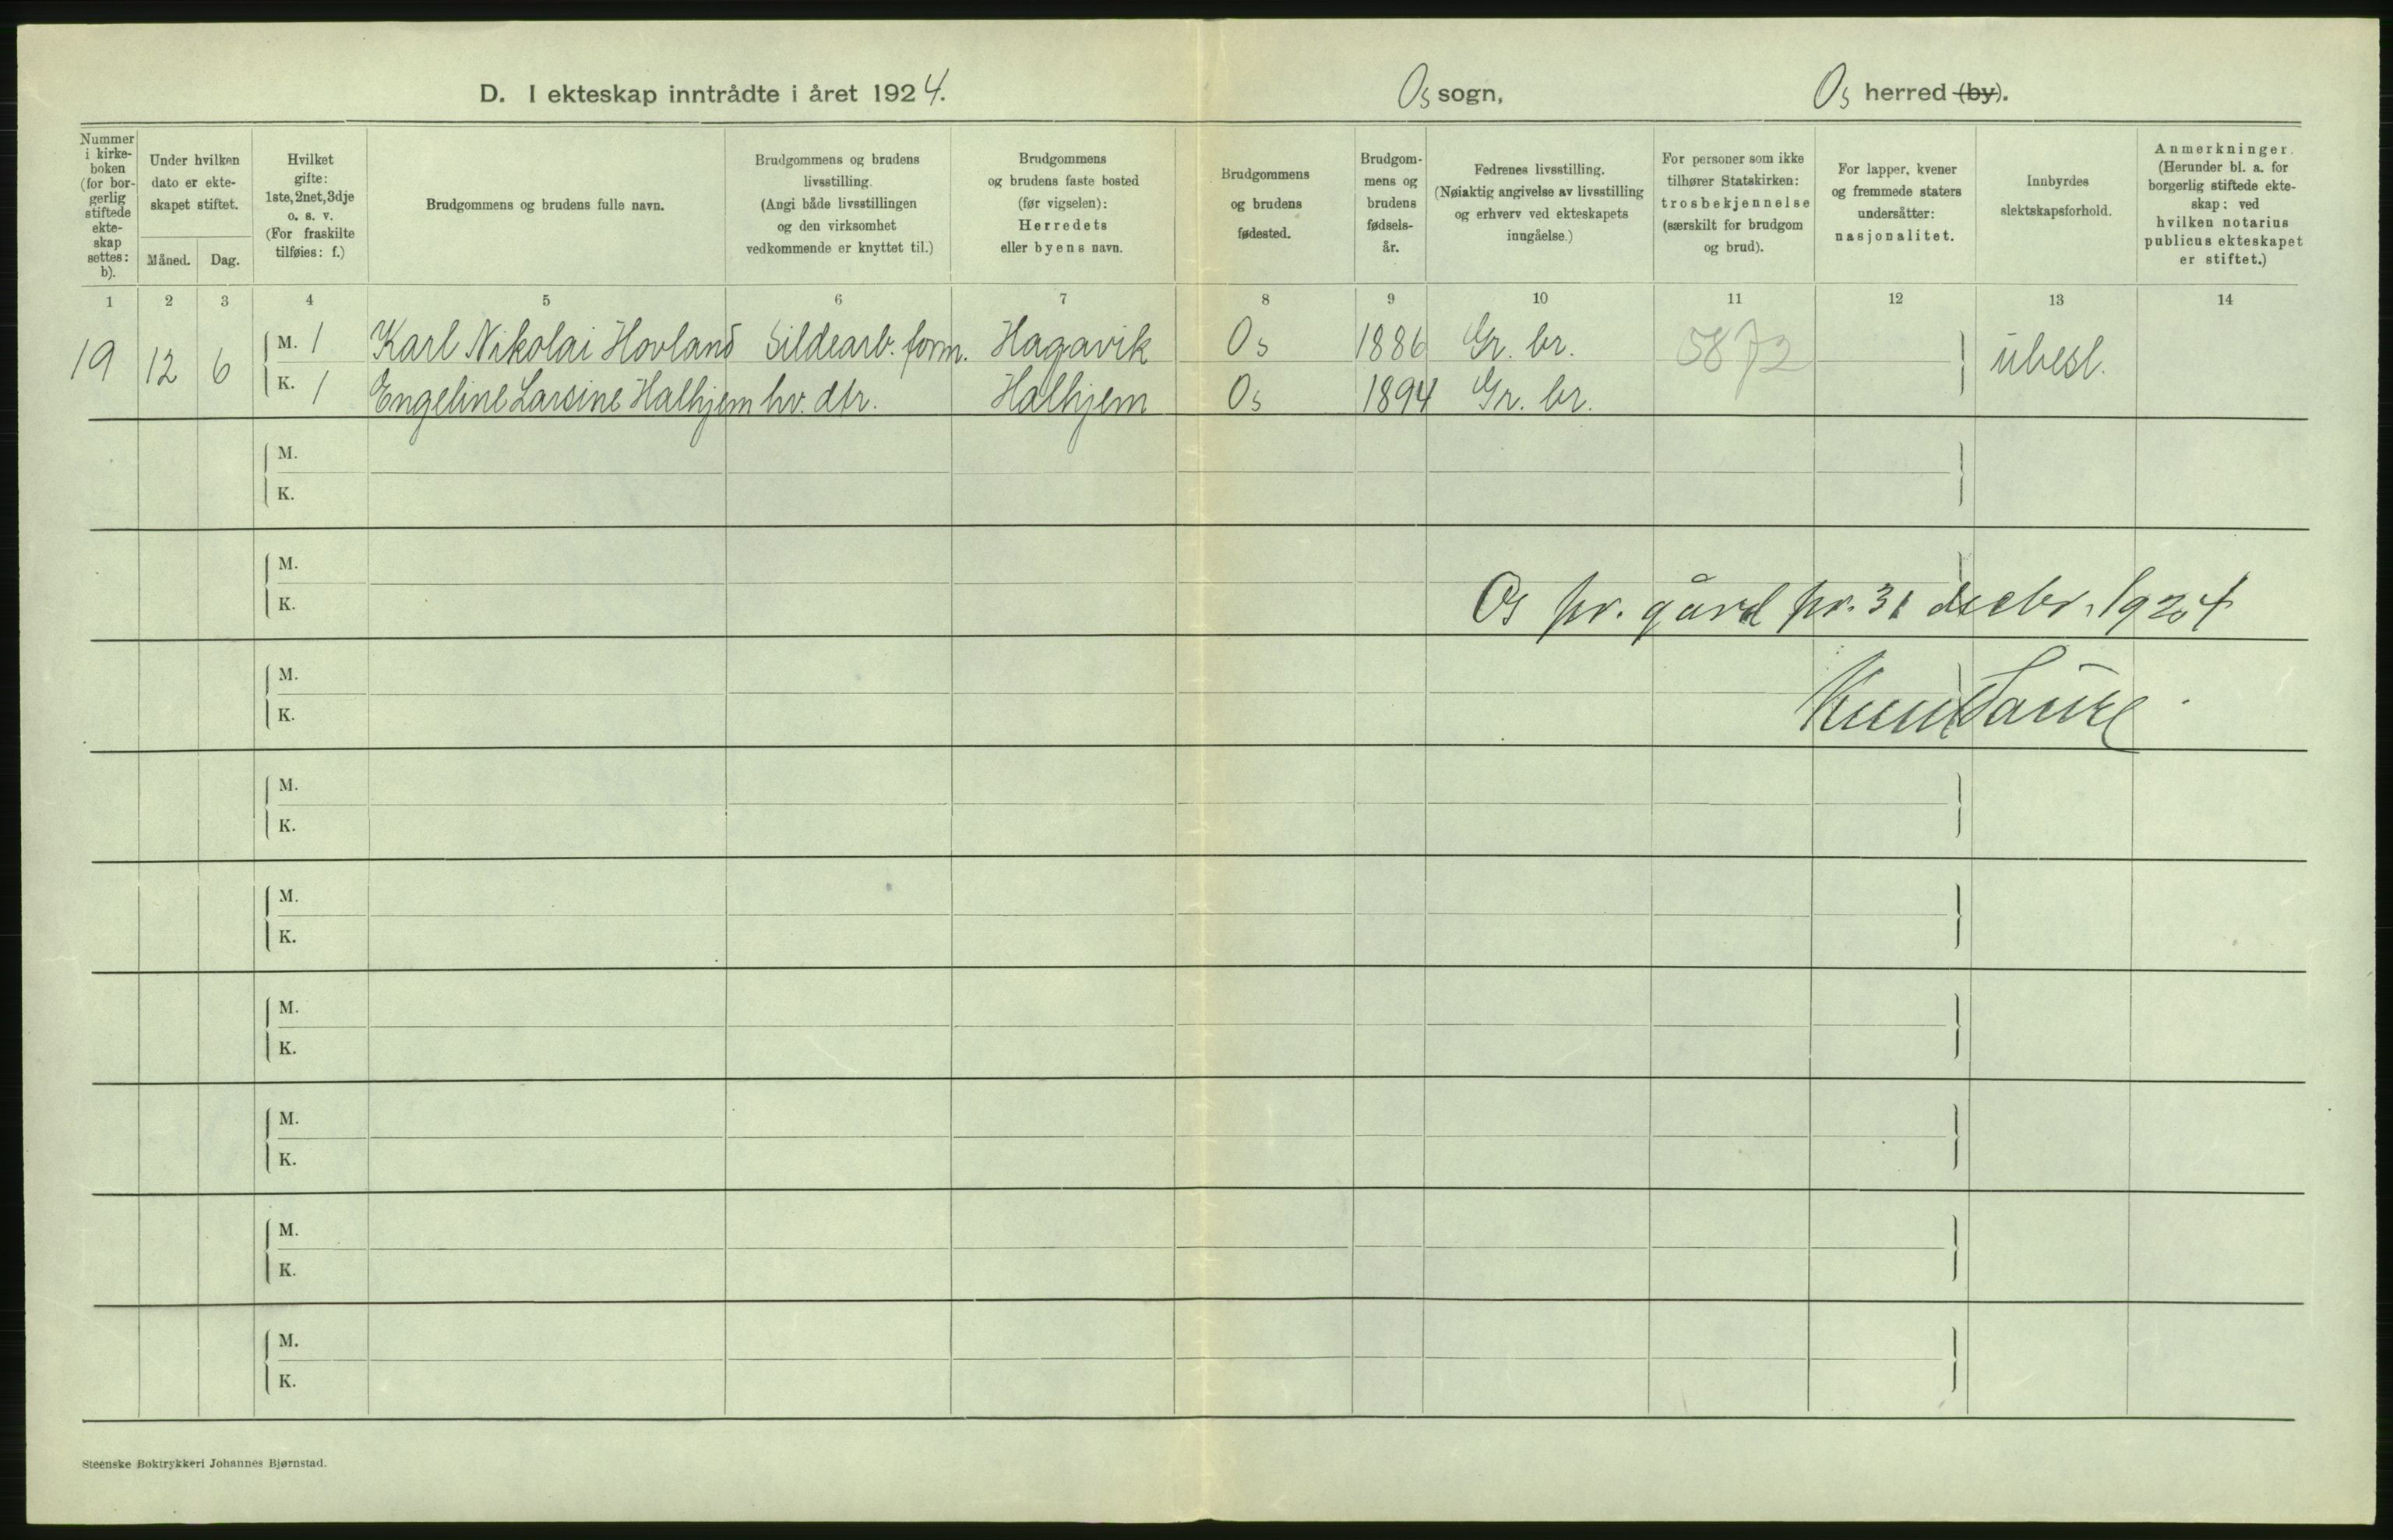 D. I ekteskap inntrådte i året 1924. Os sogn, Os herred (by).
Nummer i kirke-boken (for bor-gerlig stiftede ekte-skap settes: b).
Under hvilken dato er ekte-skapet stiftet.
Måned. Dag.
Hvilket gifte: 1ste, 2net, 3dje o. s. v. (For fraskilte tilføies: f.)
Brudgommens og brudens fulle navn.
Brudgommens og brudens livsstilling. (Angi både livsstillingen og den virksomhet vedkommende er knyttet til.)
Brudgommens og brudens faste bosted (før vigselen): Herredets eller byens navn.
Brudgommens og brudens fødested.
Brudgom-mens og brudens fødsels-år.
Fedrenes livsstilling. (Nøiaktig angivelse av livsstilling og erhverv ved ekteskapets inngåelse.)
For personer som ikke tilhører Statskirken: trosbekjennelse (særskilt for brudgom og brud).
For lapper, kvener og fremmede staters undersåtter: nasjonalitet.
Innbyrdes slektskapsforhold.
Anmerkninger. (Herunder bl. a. for borgerlig stiftede ekte-skap: ved hvilken notarius publicus ekteskapet er stiftet.)
1 2 3 4 5 6 7 8 9 10 11 12 13 14
19 12 6 M. 1 Karl Nikolai Hovland Sildearb. form. Hagavik Os 1886 Gr. br. 5872 ubesl.
K. 1 Engeline Larsine Halhjem hv. dtr. Halhjem Os 1894 Gr. br.
M.
K.
M.
K. Os pr. gård pr. 31 decbr. 1924
M.
K. Knut
M.
K.
M.
K.
M.
K.
M.
K.
M.
K.
M.
K.
Steenske Boktrykkeri Johannes Bjørnstad.